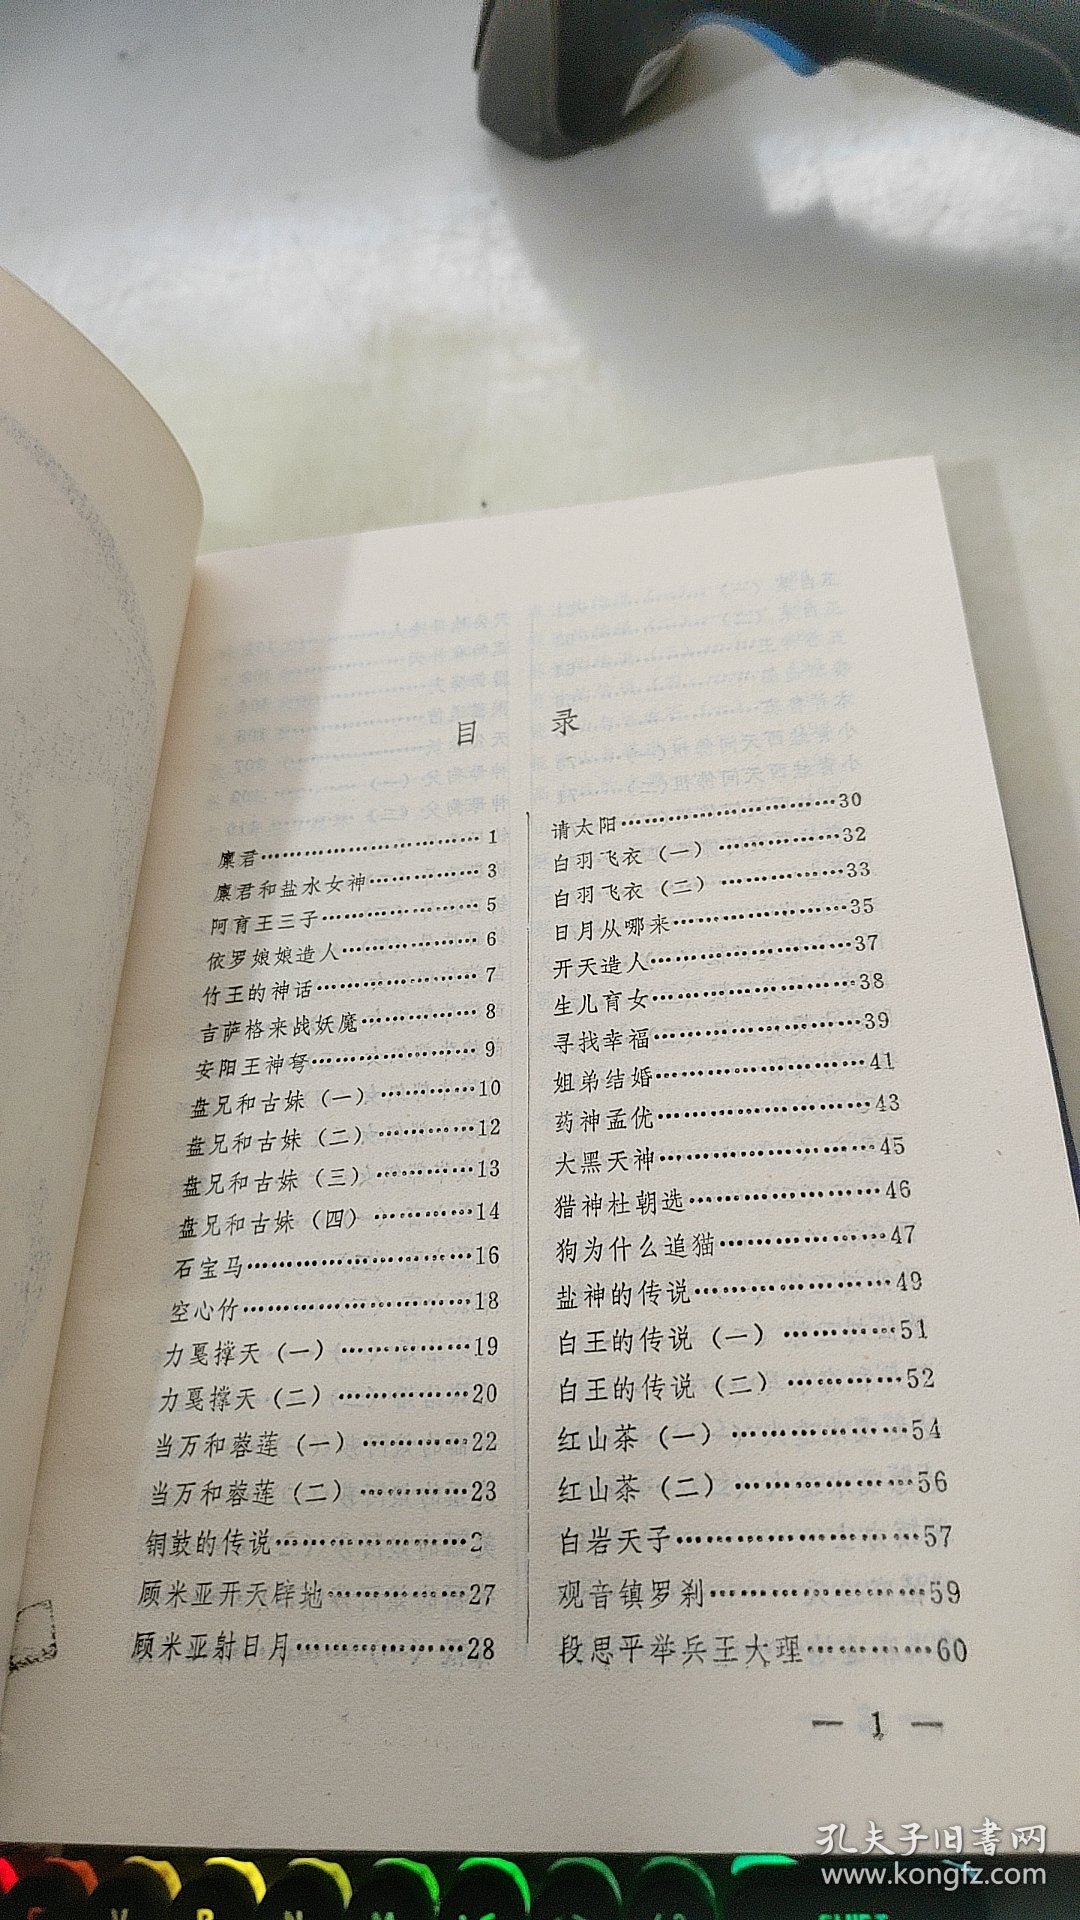 目 录
廪君…………………………1
廪君和盐水女神……………3
阿育王三子…………………5
依罗娘娘造人………………6
竹王的神话…………………7
吉萨格来战妖魔……………8
安阳王神弩…………………9
盘兄和古妹（一）…………10
盘兄和古妹（二）…………12
盘兄和古妹（三）…………13
盘兄和古妹（四）…………14
石宝马………………………16
空心竹………………………18
力戛撑天（一）……………19
力戛撑天（二）……………20
当万和蓉莲（一）…………22
当万和蓉莲（二）…………23
铜鼓的传说…………………2
顾米亚开天辟地……………27
顾米亚射日月………………28
请太阳………………………30
白羽飞衣（一）……………32
白羽飞衣（二）……………33
日月从哪来…………………35
开天造人……………………37
生儿育女……………………38
寻找幸福……………………39
姐弟结婚……………………41
药神孟优……………………43
大黑天神……………………45
猎神杜朝选…………………46
狗为什么追猫………………47
盐神的传说…………………49
白王的传说（一）…………51
白王的传说（二）…………52
红山茶（一）………………54
红山茶（二）………………56
白岩天子……………………57
观音镇罗刹…………………59
段思平举兵王大理…………60
— 1 —
孔夫子旧书网
www.kongfz.com
V B N M